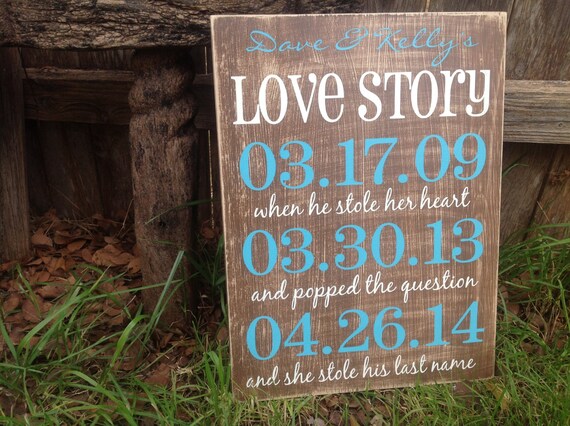 Dave & Kelly's
LOVE STORY
03.17.09
when he stole her heart
03.30.13
and popped the question
04.26.14
and she stole his last name